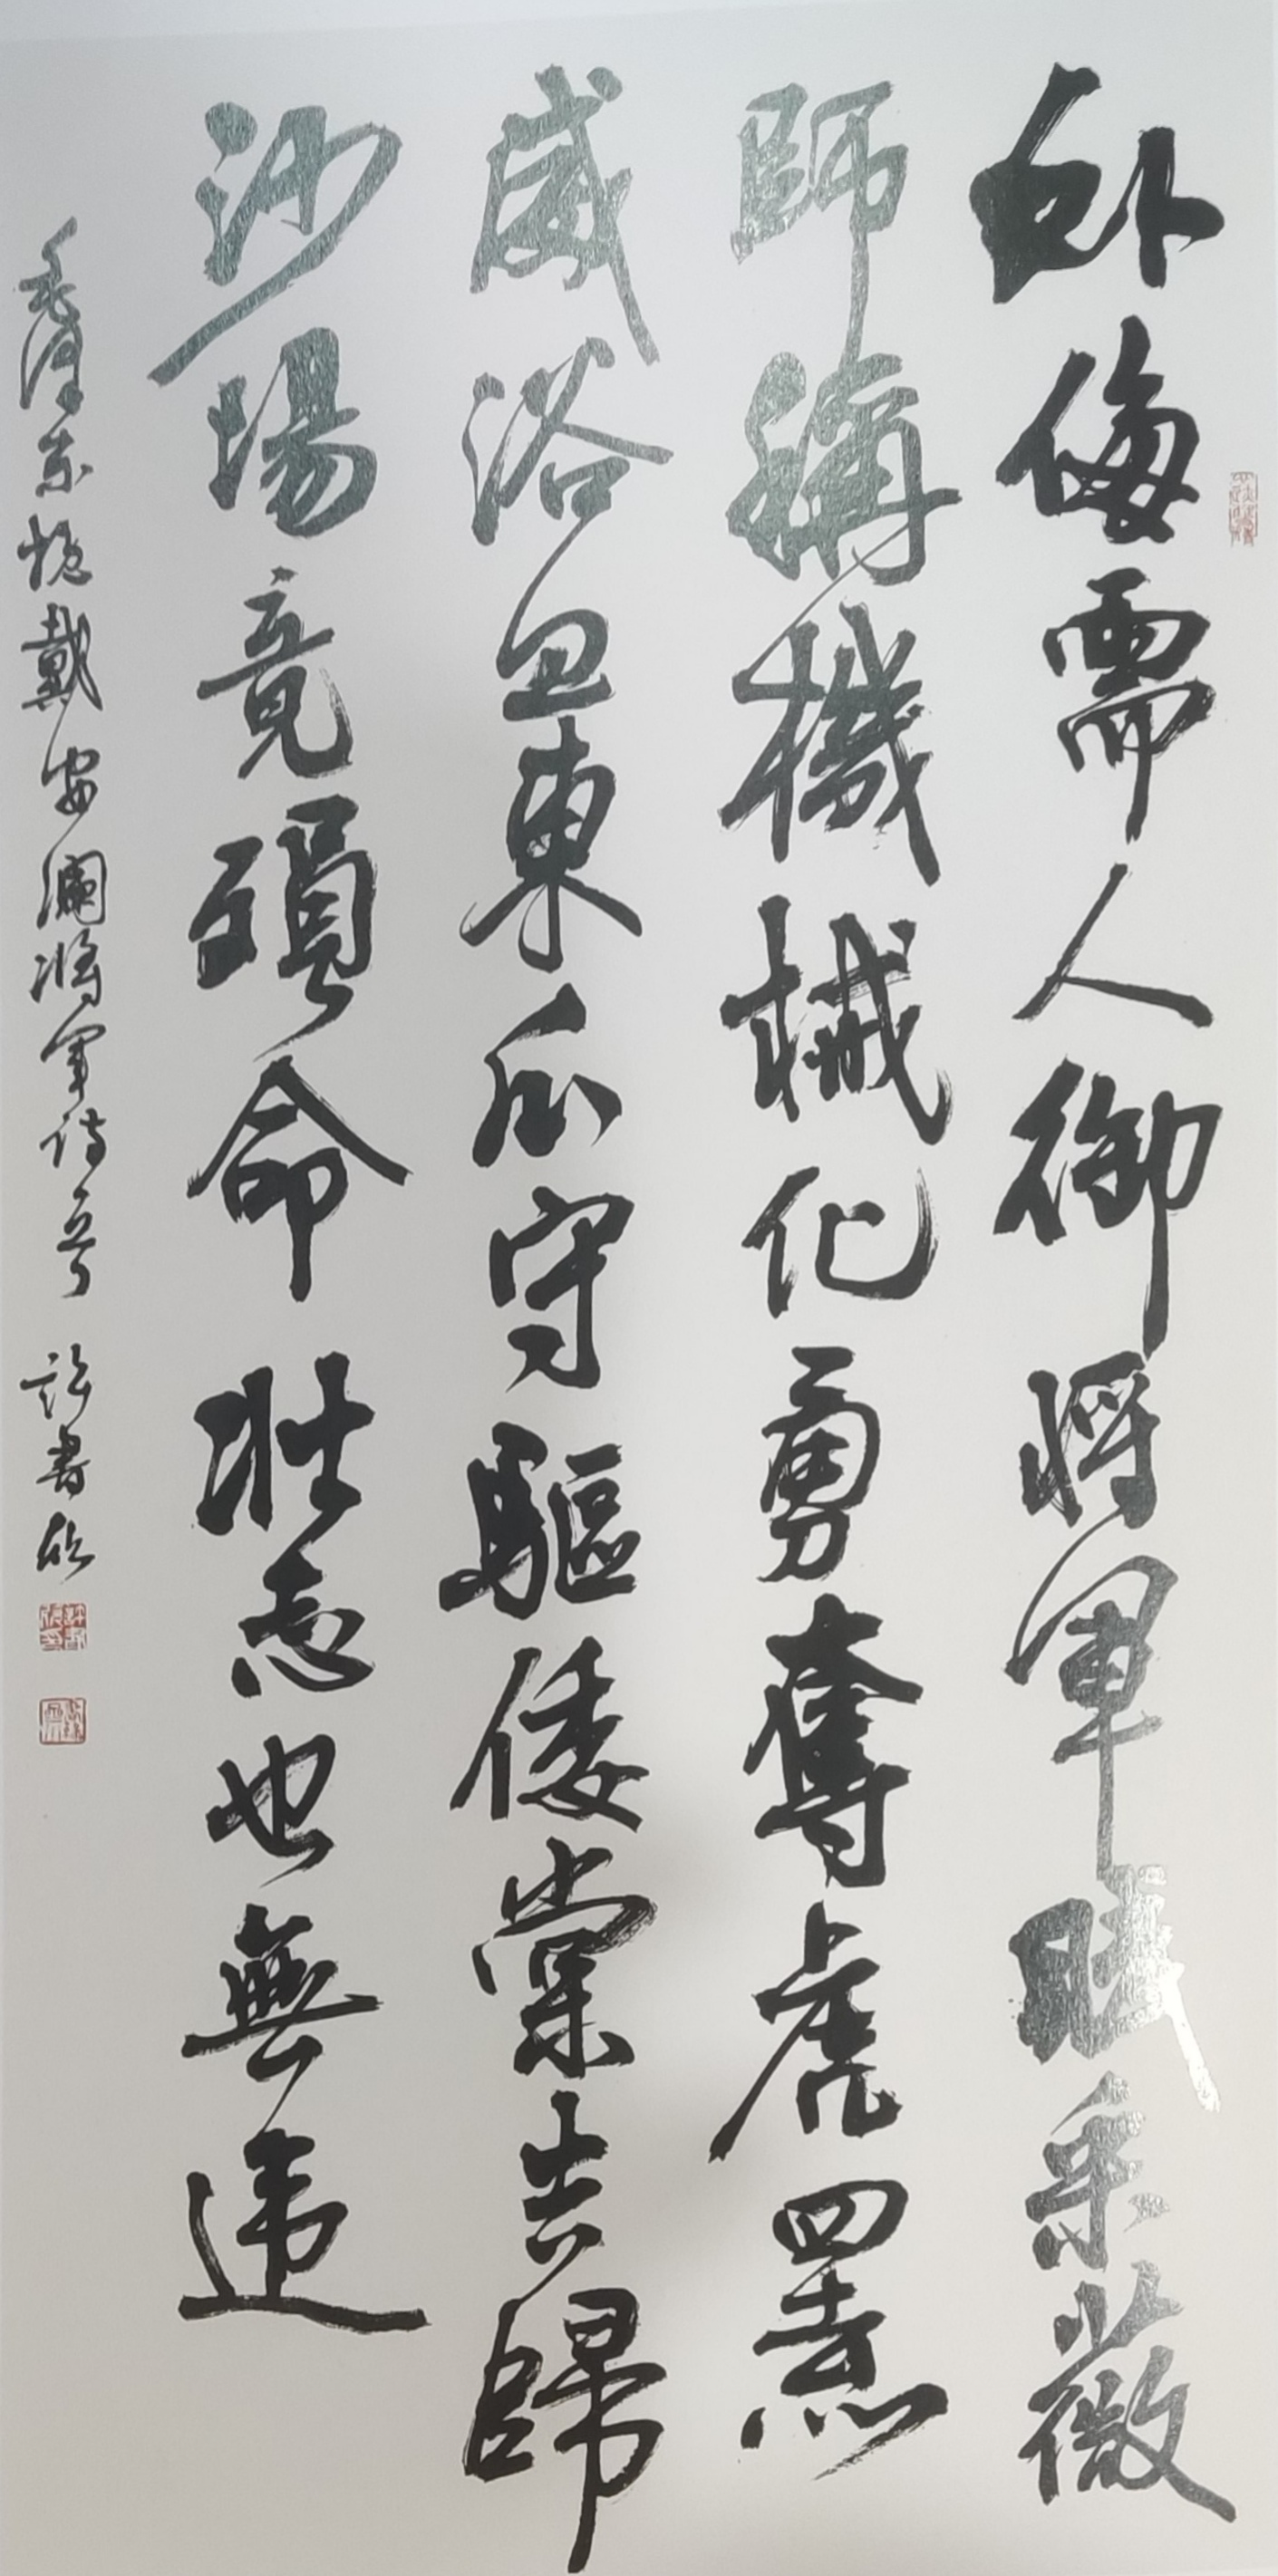 外侮需人御将軍賦采薇
師稱機械化勇奪虎羆
威浴血東瓜守驅倭棠吉歸
沙場竟殞命壯志也無違
毛澤东挽戴安瀾将軍诗一首 許書欣